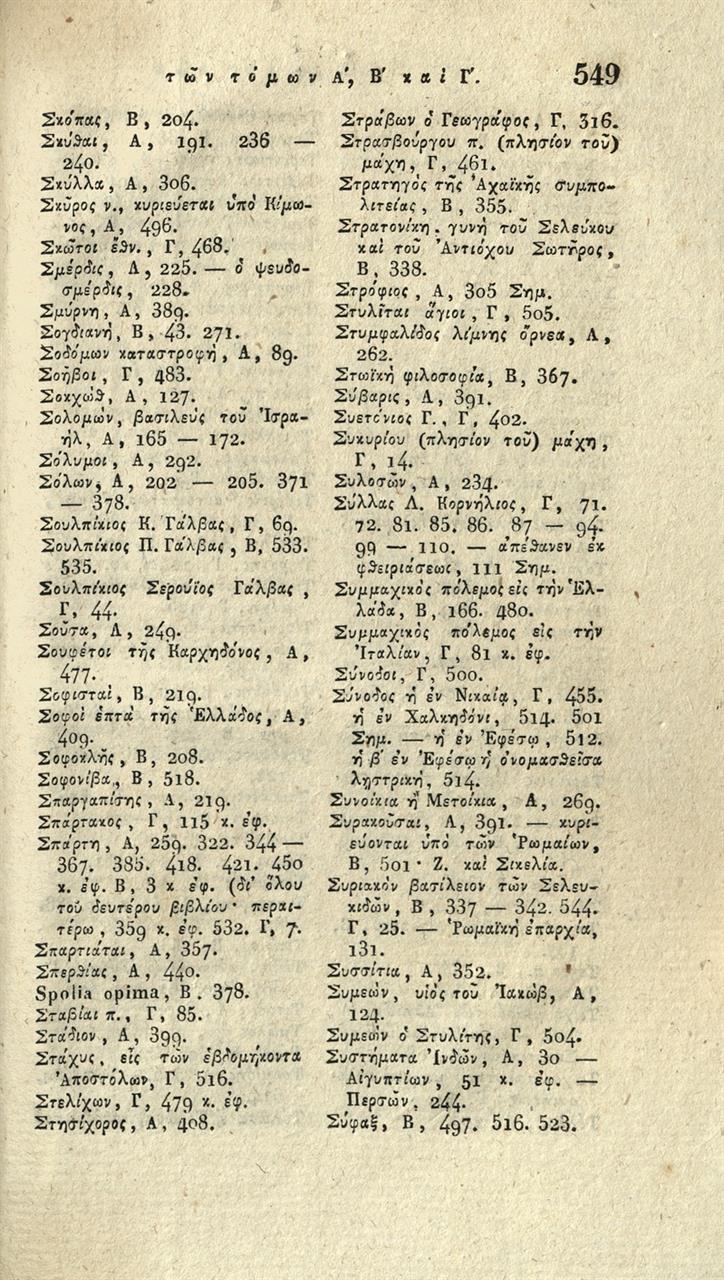 τῶν τόμων Α', Β' καὶ Γ'. 549
Σκόπας, Β, 204.
Σκύθαι, Α, 191. 236 —
240.
Σκύλλα, Α, 306.
Σκῦρος ν., κυριεύεται ὑπὸ Κίμω-
νος, Α, 496.
Σκῶτοι ἔθν., Γ, 468.
Σμέρδις, Α, 225. — ὁ ψευδο-
σμέρδις, 228.
Σμύρνη, Α, 389.
Σογδιανή, Β, 43. 271.
Σοδόμων καταστροφή, Α, 89.
Σοῆβοι, Γ, 483.
Σοκχώθ, Α, 127.
Σολομών, βασιλεὺς τοῦ Ἰσρα-
ήλ, Α, 165 — 172.
Σόλυμοι, Α, 292.
Σόλων, Α, 202 — 205. 371
— 378.
Σουλπίκιος Κ. Γάλβας, Γ, 69.
Σουλπίκιος Π. Γάλβας, Β, 533.
535.
Σουλπίκιος Σερούϊος Γάλβας,
Γ, 44.
Σοῦσα, Α, 249.
Σουφέτοι τῆς Καρχηδόνος, Α,
477.
Σοφισταί, Β, 219.
Σοφοὶ ἑπτὰ τῆς Ἑλλάδος, Α,
409.
Σοφοκλῆς, Β, 208.
Σοφονίβα, Β, 518.
Σπαργαπίσης, Α, 219.
Σπάρτακος, Γ, 115 κ. ἐφ.
Σπάρτη, Α, 259. 322. 344 —
367. 385. 418. 421. 450
κ. ἐφ. Β, 3 κ ἐφ. (δι' ὅλου
τοῦ δευτέρου βιβλίου· περαι-
τέρω, 359 κ. ἐφ. 532. Γ, 7.
Σπαρτιάται, Α, 357.
Σπερθίας, Α, 440.
Spolia opima, Β. 378.
Σταβίαι π., Γ, 85.
Στάδιον, Α, 399.
Στάχυς, εἷς τῶν ἑβδομήκοντα
Ἀποστόλων, Γ, 516.
Στελίχων, Γ, 479 κ. ἐφ.
Στησίχορος, Α, 408.
Στράβων ὁ Γεωγράφος, Γ, 316.
Στρασβούργου π. (πλησίον τοῦ)
μάχη, Γ, 461.
Στρατηγὸς τῆς Ἀχαϊκῆς συμπο-
λιτείας, Β, 355.
Στρατονίκη, γυνὴ τοῦ Σελεύκου
καὶ τοῦ Ἀντιόχου Σωτῆρος,
Β, 338.
Στρόφιος, Α, 305 Σημ.
Στυλῖται ἅγιοι, Γ, 505.
Στυμφαλίδος λίμνης ὄρνεα, Α,
262.
Στωϊκὴ φιλοσοφία, Β, 367.
Σύβαρις, Α, 391.
Συετόνιος Γ., Γ, 402.
Συκυρίου (πλησίον τοῦ) μάχη,
Γ, 14.
Συλοσῶν, Α, 234.
Σύλλας Λ. Κορνήλιος, Γ, 71.
72. 81. 85. 86. 87 — 94.
99 — 110. — ἀπέθανεν ἐκ
φθειριάσεως, 111 Σημ.
Συμμαχικὸς πόλεμος εἰς τὴν Ἑλ-
λάδα, Β, 166. 480.
Συμμαχικὸς πόλεμος εἰς τὴν
Ἰταλίαν, Γ, 81 κ. ἐφ.
Σύνοδοι, Γ, 500.
Σύνοδος ἡ ἐν Νικαίᾳ, Γ, 455.
ἡ ἐν Χαλκηδόνι, 514. 501
Σημ. — ἡ ἐν Ἐφέσῳ, 512.
ἡ β' ἐν Ἐφέσῳ ἡ ὀνομασθεῖσα
λῃστρική, 514.
Συνοίκια ἢ Μετοίκια, Α, 269.
Συρακοῦσαι, Α, 391. — κυρι-
εύονται ὑπὸ τῶν Ῥωμαίων,
Β, 501· Ζ. καὶ Σικελία.
Συριακὸν βασίλειον τῶν Σελευ-
κιδῶν, Β, 337 — 342. 544.
Γ, 25. — Ῥωμαϊκὴ ἐπαρχία,
131.
Συσσίτια, Α, 352.
Συμεών, υἱὸς τοῦ Ἰακώβ, Α,
124.
Συμεὼν ὁ Στυλίτης, Γ, 504.
Συστήματα Ἰνδῶν, Α, 30 —
Αἰγυπτίων, 51 κ. ἐφ. —
Περσῶν, 244.
Σύφαξ, Β, 497. 516. 523.